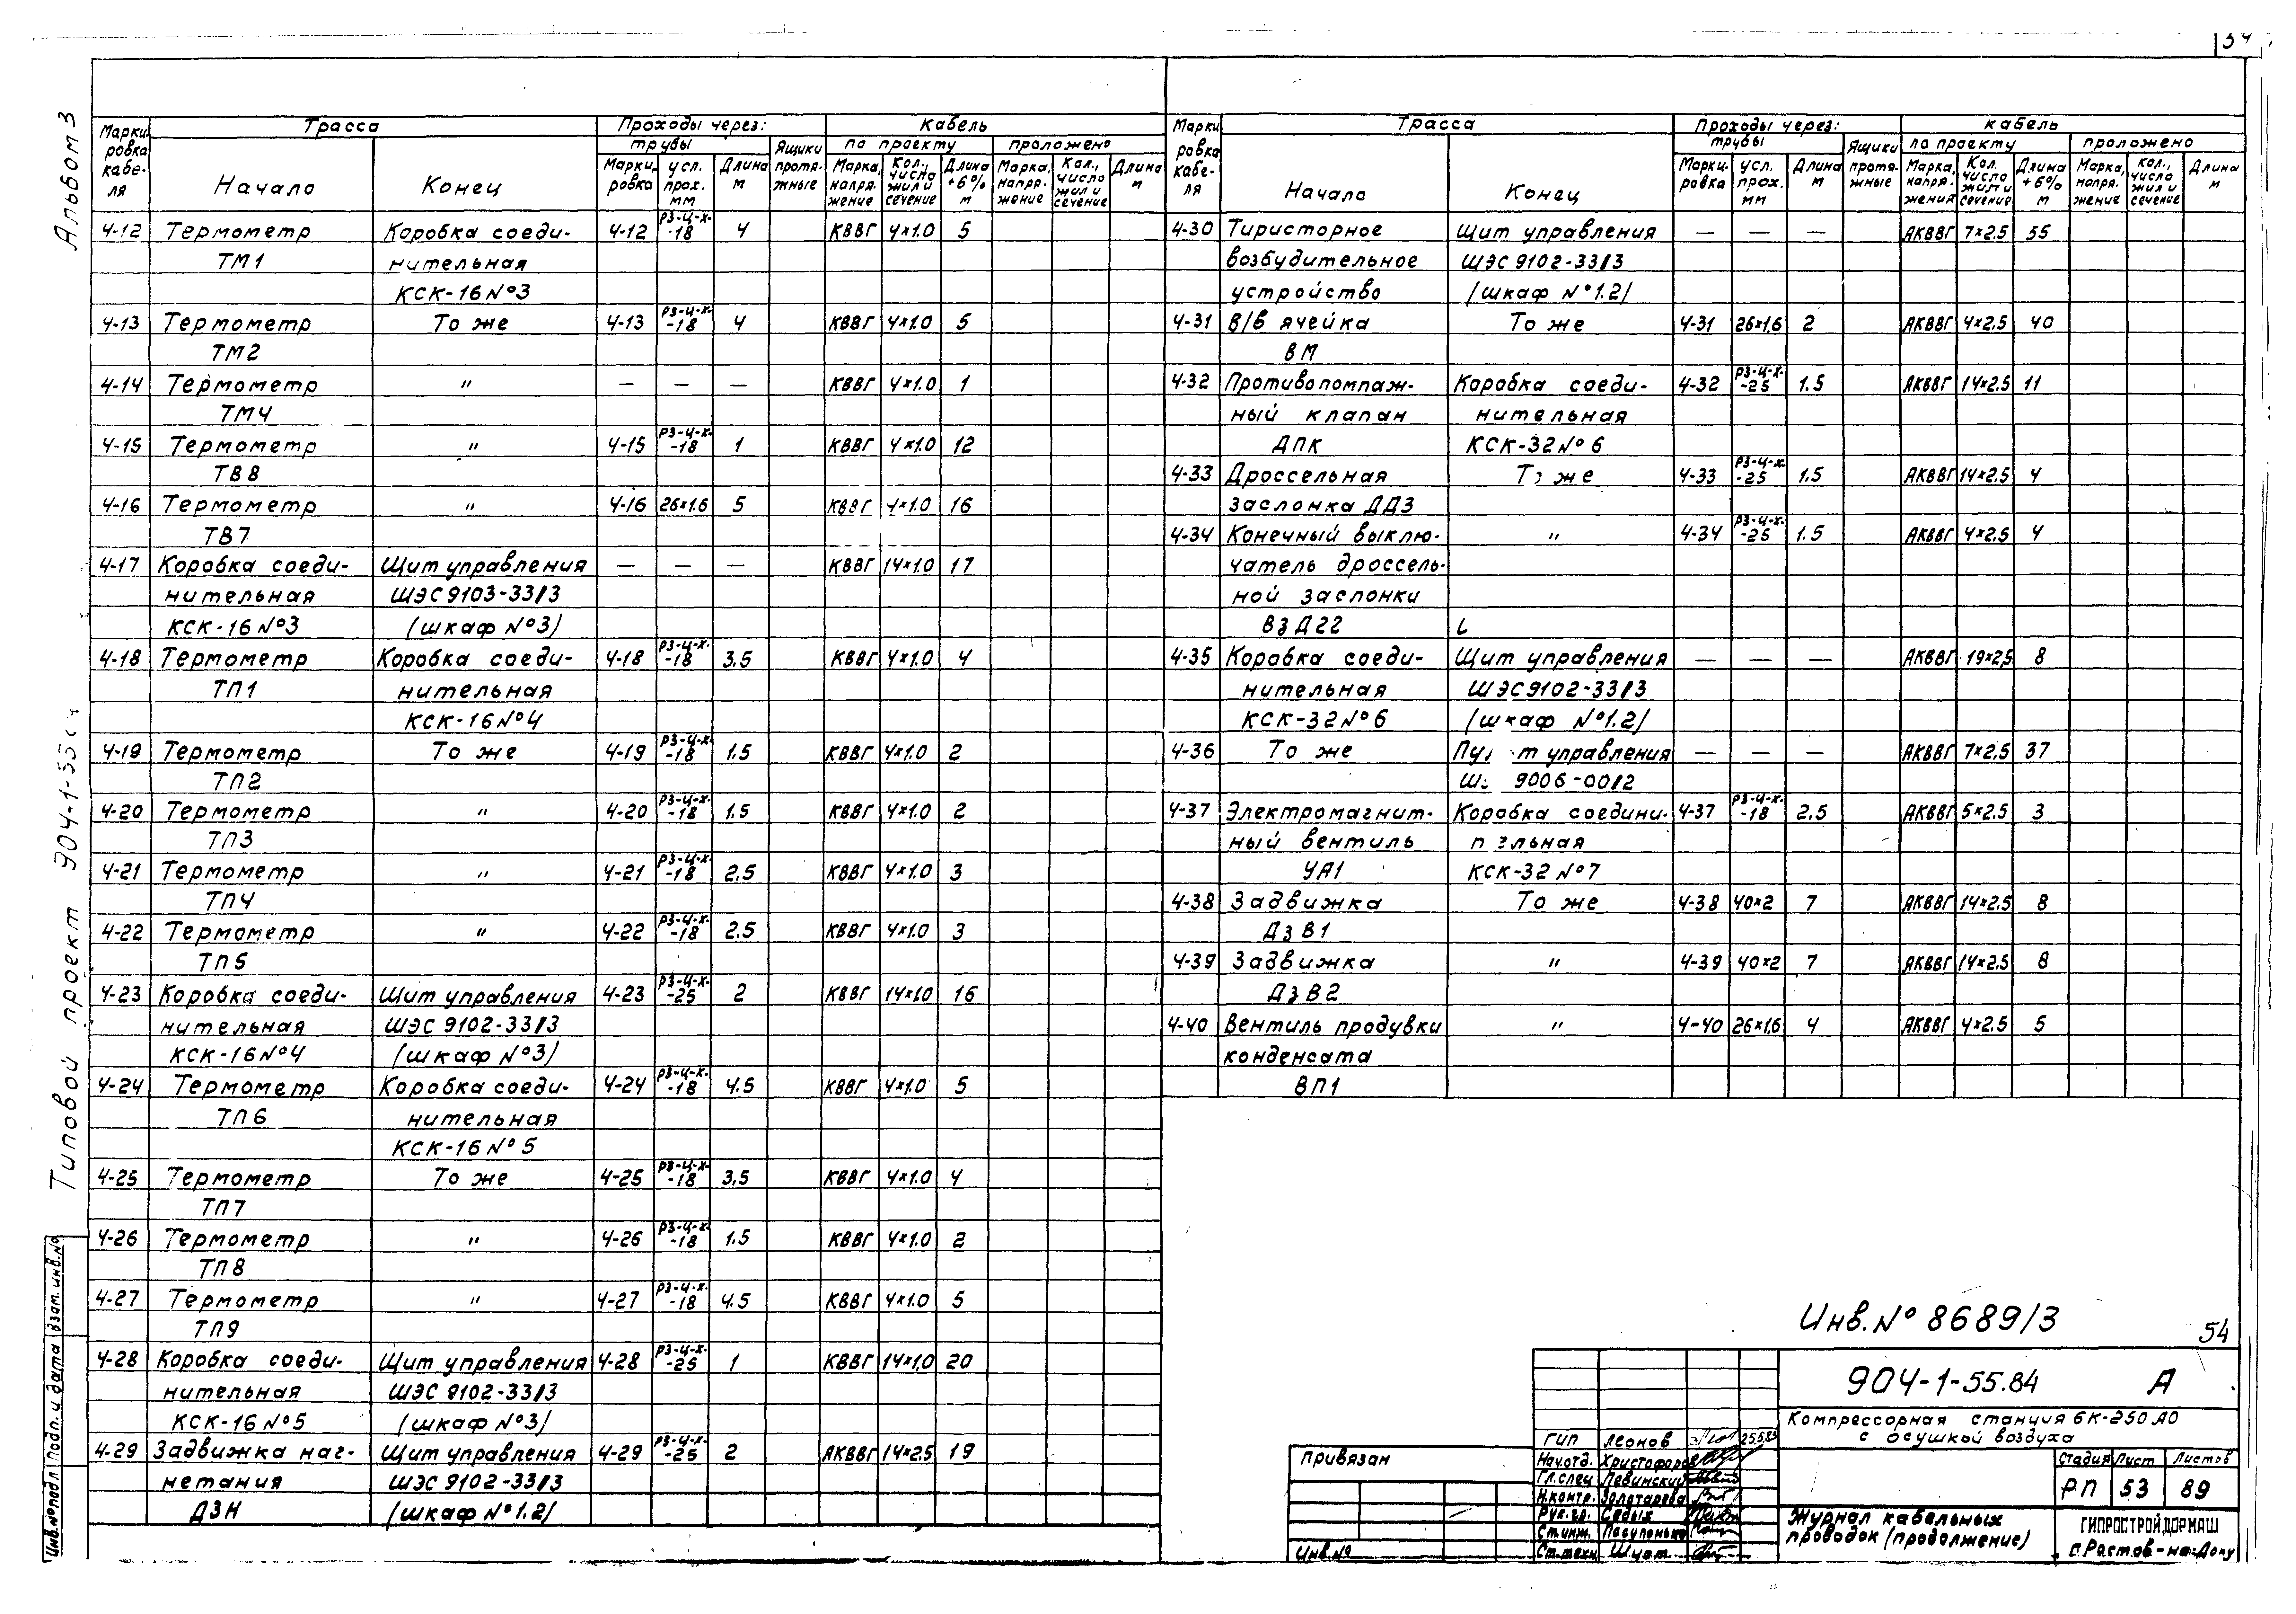 54
Альбом 3
Типовой проект 904-1-55
Марки-ровка кабе-ля | Трасса | Проходы через: | Кабель
трубы | Ящики протя-жные | по проекту | проложено
Начало | Конец | Марки-ровка | усл. прох. мм | Длина м | Марка, напря-жение | Кол., число жил и сечение | Длина +6% м | Марка, напря-жение | Кол., число жил и сечение | Длина м
4-12 Термометр Коробка соеди- 4-12 РЗ-Ц-Х--18 4 КВВГ 4×1.0 5
ТМ1 нительная
КСК-16 №3
4-13 Термометр То же 4-13 РЗ-Ц-Х--18 4 КВВГ 4×1.0 5
ТМ2
4-14 Термометр " — — — КВВГ 4×1.0 1
ТМ4
4-15 Термометр " 4-15 РЗ-Ц-Х--18 1 КВВГ 4×1.0 12
ТВ8
4-16 Термометр " 4-16 26×1.6 5 КВВГ 4×1.0 16
ТВ7
4-17 Коробка соеди- Щит управления — — — КВВГ 14×1.0 17
нительная ШЭС 9103-33/3
КСК-16 №3 (шкаф №3)
4-18 Термометр Коробка соеди- 4-18 РЗ-Ц-Х--18 3,5 КВВГ 4×1.0 4
ТП1 нительная
КСК-16 №4
4-19 Термометр То же 4-19 РЗ-Ц-Х--18 1.5 КВВГ 4×1.0 2
ТП2
4-20 Термометр " 4-20 РЗ-Ц-Х--18 1.5 КВВГ 4×1.0 2
ТП3
4-21 Термометр " 4-21 РЗ-Ц-Х--18 2.5 КВВГ 4×1.0 3
ТП4
4-22 Термометр " 4-22 РЗ-Ц-Х--18 2.5 КВВГ 4×1.0 3
ТП5
4-23 Коробка соеди- Щит управления 4-23 РЗ-Ц-Х--25 2 КВВГ 14×1.0 16
нительная ШЭС 9102-33/3
КСК-16 №4 (шкаф №3)
4-24 Термометр Коробка соеди- 4-24 РЗ-Ц-Х--18 4.5 КВВГ 4×1.0 5
ТП6 нительная
КСК-16 №5
4-25 Термометр То же 4-25 РЗ-Ц-Х--18 3,5 КВВГ 4×1.0 4
ТП7
4-26 Термометр " 4-26 РЗ-Ц-Х--18 1.5 КВВГ 4×1.0 2
ТП8
4-27 Термометр " 4-27 РЗ-Ц-Х--18 4.5 КВВГ 4×1.0 5
ТП9
4-28 Коробка соеди- Щит управления 4-28 РЗ-Ц-Х--25 1 КВВГ 14×1,0 20
нительная ШЭС 9102-33/3
КСК-16 №5 (шкаф №3)
4-29 Задвижка наг- Щит управления 4-29 РЗ-Ц-Х--25 2 АКВВГ 14×2.5 19
нетания ШЭС 9102-33/3
ДЗН (шкаф №1.2)
Марки-ровка кабе-ля | Трасса | Проходы через: | Кабель
трубы | Ящики протя-жные | по проекту | проложено
Начало | Конец | Марки-ровка | усл. прох. мм | Длина м | Марка, напря-жения | Кол. число жил и сечение | Длина +6% м | Марка, напря-жение | кол., число жил и сечение | Длина м
4-30 Тиристорное Щит управления — — — АКВВГ 7×2.5 55
возбудительное ШЭС 9102-33/3
устройство (шкаф №1.2)
4-31 В/в ячейка То же 4-31 26×1,6 2 АКВВГ 4×2.5 40
ВМ
4-32 Противопомпаж- Коробка соеди- 4-32 РЗ-Ц-Х--25 1.5 АКВВГ 14×2.5 11
ный клапан нительная
ДПК КСК-32 №6
4-33 Дроссельная То же 4-33 РЗ-Ц-Х--25 1.5 АКВВГ 14×2.5 4
заслонка ДДЗ
4-34 Конечный выклю- " 4-34 РЗ-Ц-Х--25 1.5 АКВВГ 4×2.5 4
чатель дроссель-
ной заслонки
ВзД22
4-35 Коробка соеди- Щит управления — — — АКВВГ 19×2,5 8
нительная ШЭС 9102-33/3
КСК-32 №6 (шкаф №1.2)
4-36 То же управления — — — АКВВГ 7×2.5 37
9006-00/2
4-37 Электромагнит- Коробка соедини- 4-37 РЗ-Ц-Х--18 2,5 АКВВГ 5×2.5 3
ный вентиль тельная
УА1 КСК-32 №7
4-38 Задвижка То же 4-38 40×2 7 АКВВГ 14×2.5 8
ДзВ1
4-39 Задвижка " 4-39 40×2 7 АКВВГ 14×2.5 8
ДзВ2
4-40 Вентиль продувки " 4-40 26×1,6 4 АКВВГ 4×2.5 5
конденсата
ВП1
Инв. № 8689/3
54
904-1-55.84 А
Компрессорная станция 6К-250 АО
с осушкой воздуха
ГИП Леонов 25.5.83
Нач.отд. Христофоров
Гл.спец Левинский
Н.контр. Золотарева
Рук.гр. Седых
Ст.инж.
Ст.техн. Шуст
Привязан
Инв.№
Стадия Лист Листов
РП 53 89
Журнал кабельных
проводок (продолжение)
ГИПРОСТРОЙДОРМАШ
г. Ростов-на-Дону
Инв.№ подл. Подп. и дата Взам.инв.№